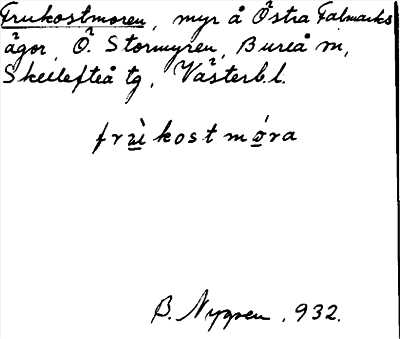 Frukostmoren, myr å Östra Falmarks
ägor, Ö. Stormyren, Bureå sn,
Skellefteå tg, Västerb.l.
frùi kost møra
B. Nygren. 932.